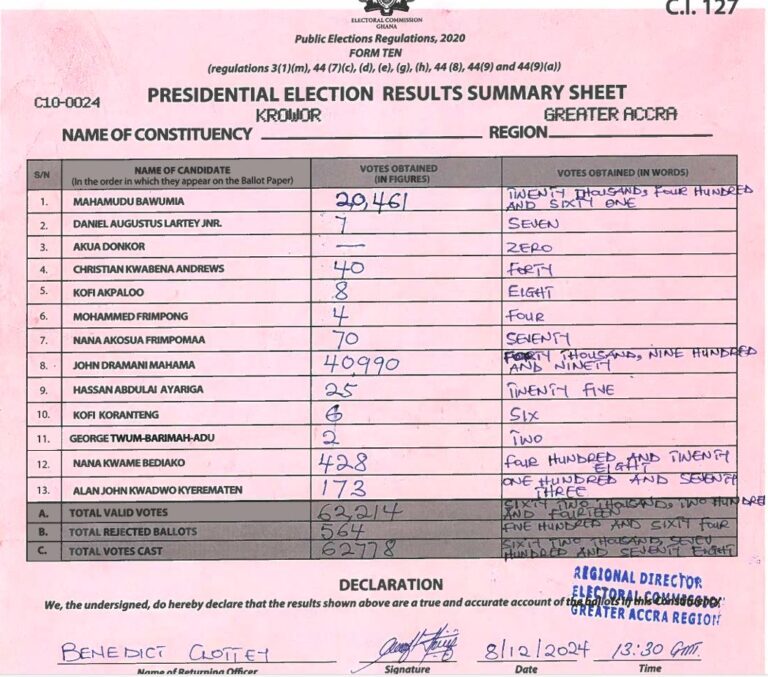 C.I. 127
ELECTORAL COMMISSION
GHANA
Public Elections Regulations, 2020
FORM TEN
(regulations 3(1)(m), 44 (7)(c), (d), (e), (g), (h), 44 (8), 44(9) and 44(9)(a))
C10-0024
PRESIDENTIAL ELECTION RESULTS SUMMARY SHEET
KROWOR GREATER ACCRA
NAME OF CONSTITUENCY REGION
S/N NAME OF CANDIDATE (In the order in which they appear on the Ballot Paper) VOTES OBTAINED (IN FIGURES) VOTES OBTAINED (IN WORDS)
1. MAHAMUDU BAWUMIA 20,461 TWENTY THOUSAND, FOUR HUNDRED AND SIXTY ONE
2. DANIEL AUGUSTUS LARTEY JNR. 7 SEVEN
3. AKUA DONKOR — ZERO
4. CHRISTIAN KWABENA ANDREWS 40 FORTY
5. KOFI AKPALOO 8 EIGHT
6. MOHAMMED FRIMPONG 4 FOUR
7. NANA AKOSUA FRIMPOMAA 70 SEVENTY
8. JOHN DRAMANI MAHAMA 40,990 FORTY THOUSAND, NINE HUNDRED AND NINETY
9. HASSAN ABDULAI AYARIGA 25 TWENTY FIVE
10. KOFI KORANTENG 6 SIX
11. GEORGE TWUM-BARIMAH-ADU 2 TWO
12. NANA KWAME BEDIAKO 428 FOUR HUNDRED AND TWENTY EIGHT
13. ALAN JOHN KWADWO KYEREMATEN 173 ONE HUNDRED AND SEVENTY THREE
A. TOTAL VALID VOTES 62,214 SIXTY TWO THOUSAND, TWO HUNDRED AND FOURTEEN
B. TOTAL REJECTED BALLOTS 564 FIVE HUNDRED AND SIXTY FOUR
C. TOTAL VOTES CAST 62778 SIXTY TWO THOUSAND, SEVEN HUNDRED AND SEVENTY EIGHT
DECLARATION
We, the undersigned, do hereby declare that the results shown above are a true and accurate account of the ballots in this Constituency.
REGIONAL DIRECTOR
ELECTORAL COMMISSION
GREATER ACCRA REGION
BENEDICT CLOTTEY 8/12/2024 13:30 GMT.
Name of Returning Officer Signature Date Time